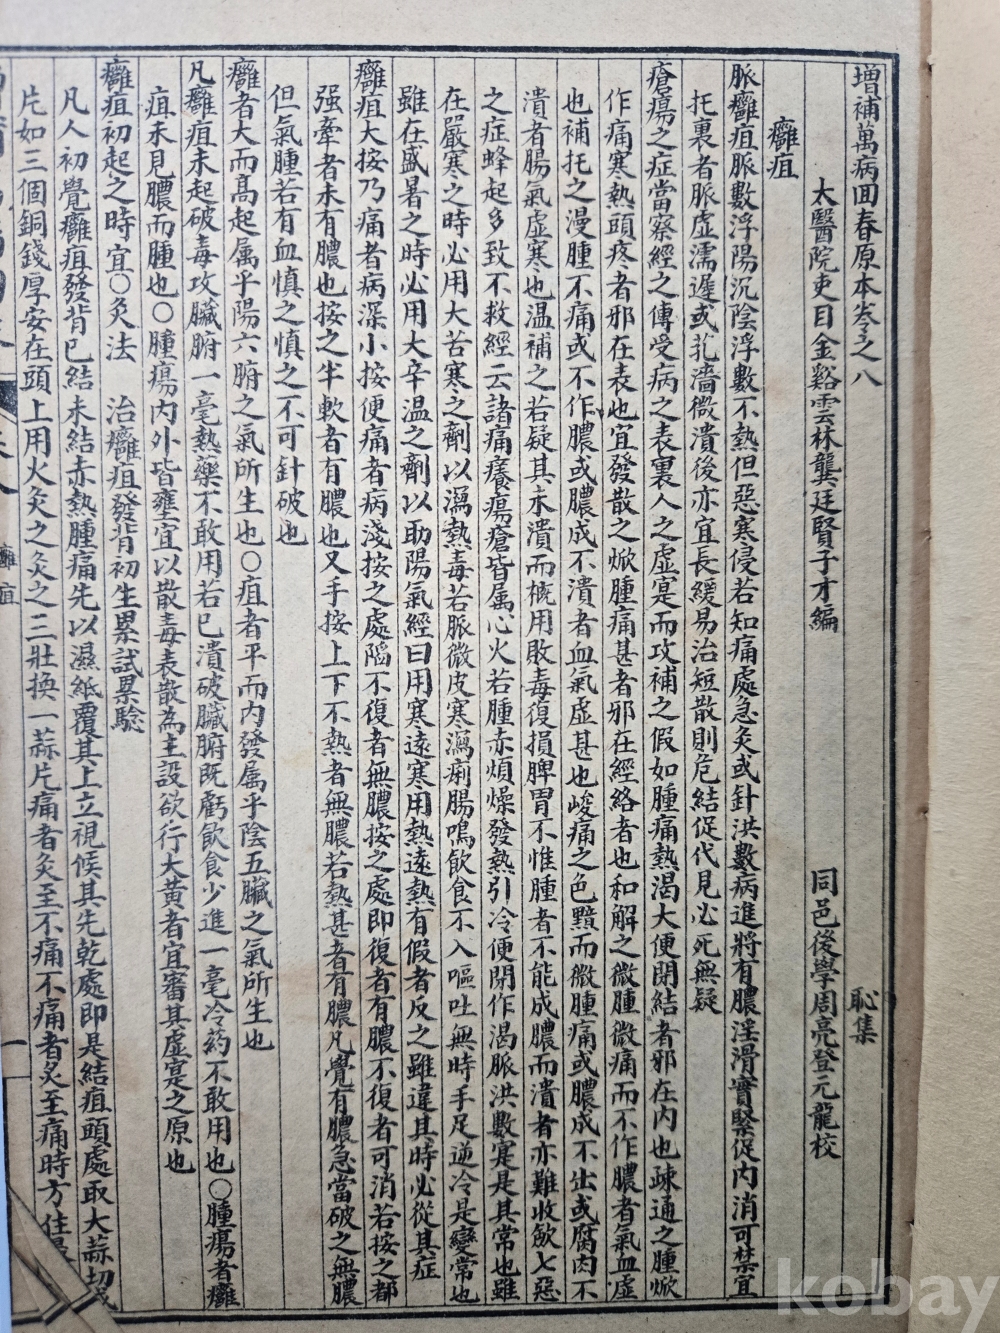 增補萬病回春原本卷之八 恥集
太醫院吏目金谿雲林龔廷賢子才編 同邑後學周亮登元龍校
癰疽
脈癰疽脈數浮陽沉陰浮數不熱但惡寒侵若知痛處急灸或針洪數病進將有膿淫滑實緊促內消可禁宜
托裏者脈虛濡遲或芤濇微潰後亦宜長緩易治短散則危結促代見必死無疑
瘡瘍之症當察經之傳受病之表裏人之虛寔而攻補之假如腫痛熱渴大便閉結者邪在內也疎通之腫焮
作痛寒熱頭疼者邪在表也宜發散之焮腫痛甚者邪在經絡者也和解之微腫微痛而不作膿者氣血虛
也補托之漫腫不痛或不作膿或膿成不潰者血氣虛甚也峻痛之色黯而微腫痛或膿成不出或腐肉不
潰者腸氣虛寒也温補之若疑其未潰而概用敗毒復損脾胃不惟腫者不能成膿而潰者亦難收歛七惡
之症蜂起多致不救經云諸痛癢瘍瘡皆属心火若腫赤煩燥發熱引冷便閉作渴脈洪數寔是其常也雖
在嚴寒之時必用大苦寒之劑以瀉熱毒若脈微皮寒瀉痢腸鳴飲食不入嘔吐無時手足逆冷是變常也
雖在盛暑之時必用大辛温之劑以助陽氣經曰用寒遠寒用熱遠熱有假者反之雖違其時必從其症
癰疽大按乃痛者病深小按便痛者病淺按之處陷不復者無膿按之處即復者有膿不復者可消若按之都
强牽者未有膿也按之半軟者有膿也又手按上下不熱者無膿若熱甚者有膿凡覺有膿急當破之無膿
但氣腫若有血慎之慎之不可針破也
癰者大而高起属乎陽六腑之氣所生也〇疽者平而內發属乎陰五臟之氣所生也
凡癰疽未起破毒攻臟腑一毫熱藥不敢用若已潰破臟腑既虧飲食少進一毫冷药不敢用也〇腫瘍者癰
疽未見膿而腫也〇腫瘍內外皆壅宜以散毒表散為主設欲行大黃者宜審其虛寔之原也
癰疽初起之時宜〇灸法 治癰疽發背初生累試累騐
凡人初覺癰疽發背已結未結赤熱腫痛先以濕紙覆其上立視候其先乾處即是結疽頭處取大蒜切成
片如三個銅錢厚安在頭上用火灸之灸之三壯換一蒜片痛者灸至不痛不痛者炙至痛時方住
癰疽
一
kobay